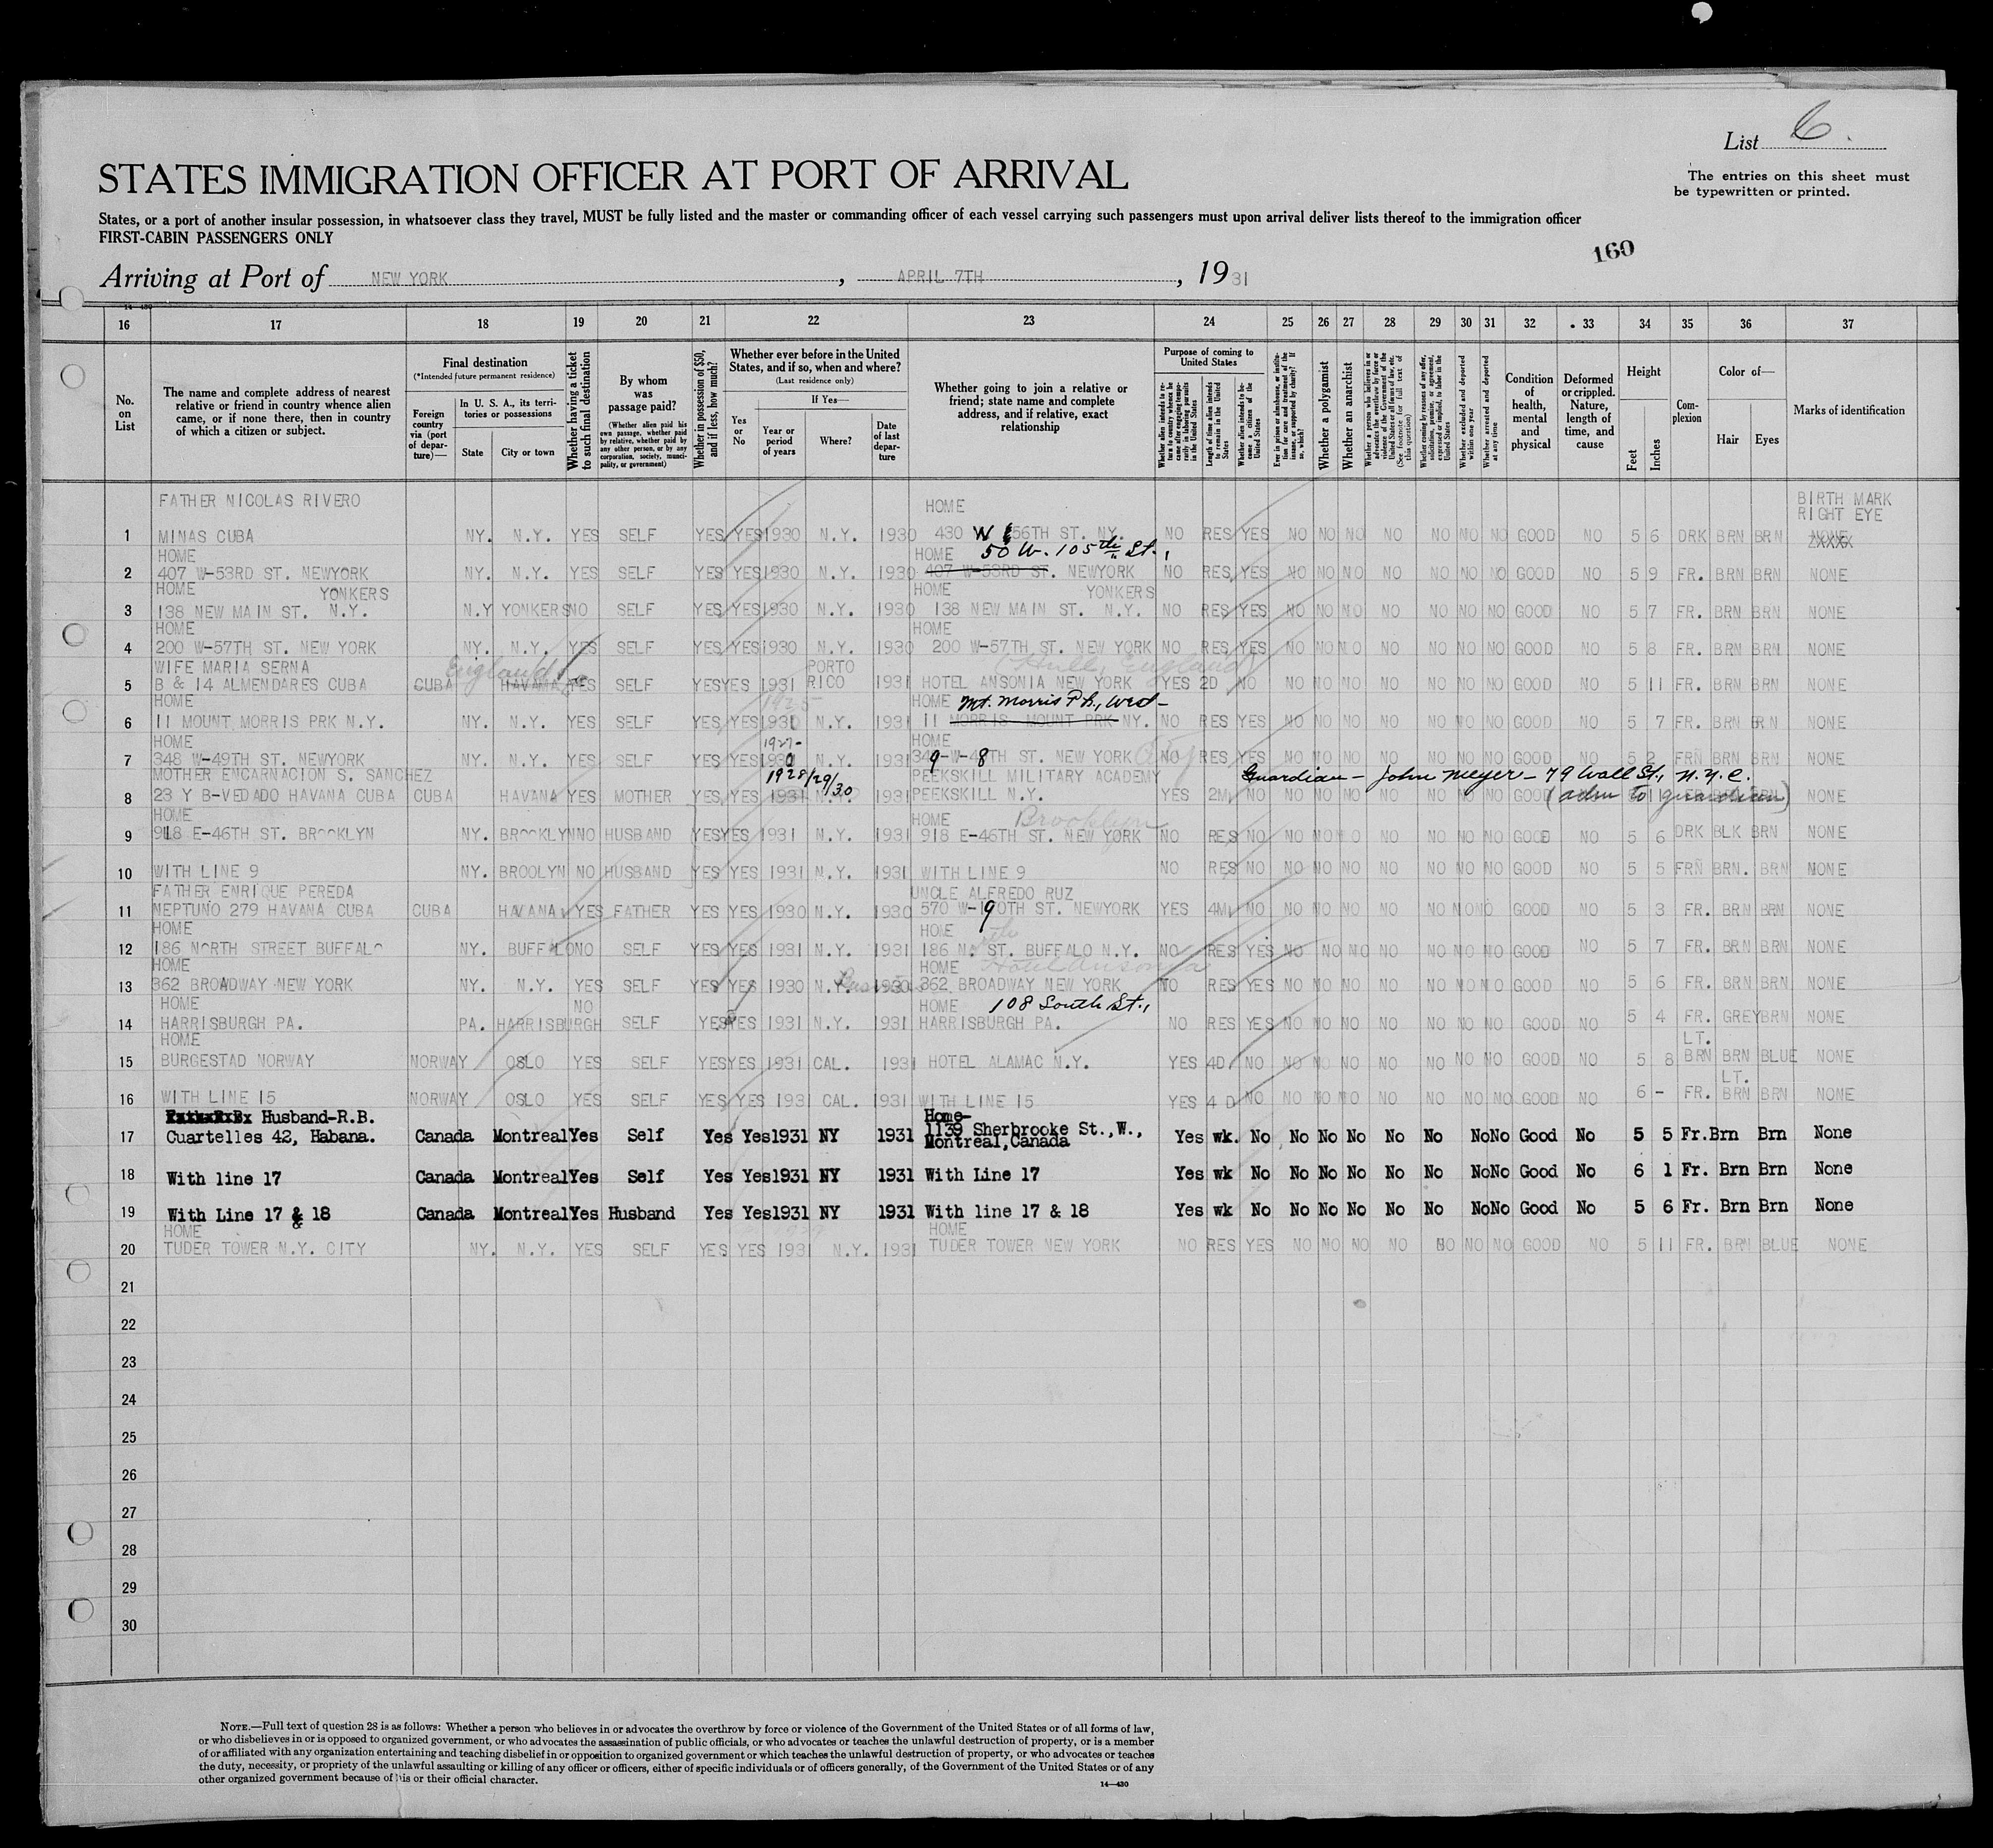 List 6.
The entries on this sheet must
be typewritten or printed.
STATES IMMIGRATION OFFICER AT PORT OF ARRIVAL
States, or a port of another insular possession, in whatsoever class they travel, MUST be fully listed and the master or commanding officer of each vessel carrying such passengers must upon arrival deliver lists thereof to the immigration officer
FIRST-CABIN PASSENGERS ONLY
160
Arriving at Port of NEW YORK, APRIL 7TH, 1931
16 17 18 19 20 21 22 23 24 25 26 27 28 29 30 31 32 33 34 35 36 37
No. on List
The name and complete address of nearest relative or friend in country whence alien came, or if none there, then in country of which a citizen or subject.
Final destination
(*Intended future permanent residence)
Foreign country via (port of departure)—
In U. S. A., its territories or possessions
State
City or town
Whether having a ticket to such final destination
By whom was passage paid?
(Whether alien paid his own passage, whether paid by relative, whether paid by any other person, or by any corporation, society, municipality, or government)
Whether in possession of $50, and if less, how much?
Whether ever before in the United States, and if so, when and where?
(Last residence only)
Yes or No
If Yes—
Year or period of years
Where?
Date of last departure
Whether going to join a relative or friend; state name and complete address, and if relative, exact relationship
Purpose of coming to United States
Whether alien intends to return to country whence he came after engaging temporarily in laboring pursuits in the United States
Length of time alien intends to remain in the United States
Whether alien intends to become a citizen of the United States
Ever in prison or almshouse, or institution for care and treatment of the insane, or supported by charity? If so, which?
Whether a polygamist
Whether an anarchist
Whether a person who believes in or advocates the overthrow by force or violence of the Government of the United States or all forms of law, etc. (See footnote for full text of this question)
Whether coming by reasons of any offer, solicitation, promise, or agreement, expressed or implied, to labor in the United States
Whether excluded and deported within one year
Whether arrested and deported at any time
Condition of health, mental and physical
Deformed or crippled. Nature, length of time, and cause
Height
Feet
Inches
Complexion
Color of—
Hair
Eyes
Marks of identification
FATHER NICOLAS RIVERO HOME BIRTH MARK
RIGHT EYE
1 MINAS CUBA NY. N.Y. YES SELF YES YES 1930 N.Y. 1930 430 W 156TH ST. NY. NO RES YES NO NO NO NO NO NO NO GOOD NO 5 6 DRK BRN BRN NONE
HOME HOME 50 W. 105th St.,
2 407 W-53RD ST. NEWYORK NY. N.Y. YES SELF YES YES 1930 N.Y. 1930 407 W-53RD ST. NEWYORK NO RES YES NO NO NO NO NO NO NO GOOD NO 5 9 FR. BRN BRN NONE
HOME YONKERS HOME YONKERS
3 138 NEW MAIN ST. N.Y. N.Y YONKERS NO SELF YES YES 1930 N.Y. 1930 138 NEW MAIN ST. N.Y. NO RES YES NO NO NO NO NO NO NO GOOD NO 5 7 FR. BRN BRN NONE
HOME HOME
4 200 W-57TH ST. NEW YORK NY. N.Y. YES SELF YES YES 1930 N.Y. 1930 200 W-57TH ST. NEW YORK NO RES YES NO NO NO NO NO NO NO GOOD NO 5 8 FR. BRN BRN NONE
WIFE MARIA SERNA England PORTO (Hull, England)
5 B & 14 ALMENDARES CUBA CUBA HAVANA YES SELF YES YES 1931 RICO 1931 HOTEL ANSONIA NEW YORK YES 2D NO NO NO NO NO NO NO NO GOOD NO 5 11 FR. BRN BRN NONE
HOME 1925 HOME Mt. Morris Pk., West
6 11 MOUNT MORRIS PRK N.Y. NY. N.Y. YES SELF YES YES 1931 N.Y. 1931 11 MORRIS MOUNT PRK NY. NO RES YES NO NO NO NO NO NO NO GOOD NO 5 7 FR. BRN BRN NONE
HOME 1927- HOME
7 348 W-49TH ST. NEWYORK NY. N.Y. YES SELF YES YES 1930 N.Y. 1931 348-W-48TH ST. NEW YORK NO RES YES NO NO NO NO NO NO NO GOOD NO 5 2 FRÑ BRN BRN NONE
MOTHER ENCARNACION S. SANCHEZ 1928/29/30 PEEKSKILL MILITARY ACADEMY Guardian - John Meyer - 79 Wall St., N.Y.C.
8 23 Y B-VEDADO HAVANA CUBA CUBA HAVANA YES MOTHER YES YES 1931 N.Y. 1931 PEEKSKILL N.Y. YES 2M NO NO NO NO NO NO NO NO GOOD (adm to guardian) NONE
HOME HOME Brooklyn
9 918 E-46TH ST. BROOKLYN NY. BROOKLYN NO HUSBAND YES YES 1931 N.Y. 1931 918 E-46TH ST. NEW YORK NO RES NO NO NO NO NO NO NO NO GOOD NO 5 6 DRK BLK BRN NONE
10 WITH LINE 9 NY. BROOLYN NO HUSBAND YES YES 1931 N.Y. 1931 WITH LINE 9 NO RES NO NO NO NO NO NO NO NO GOOD NO 5 5 FRÑ BRN. BRN NONE
FATHER ENRIQUE PEREDA UNCLE ALFREDO RUZ
11 NEPTUNO 279 HAVANA CUBA CUBA HAVANA YES FATHER YES YES 1930 N.Y. 1930 570 W-190TH ST. NEWYORK YES 4M NO NO NO NO NO NO NO NO GOOD NO 5 3 FR. BRN BRN NONE
HOME HOME
12 186 NORTH STREET BUFFALO NY. BUFFALO NO SELF YES YES 1931 N.Y. 1931 186 North ST. BUFFALO N.Y. NO RES YES NO NO NO NO NO NO NO GOOD NO 5 7 FR. BRN BRN NONE
HOME HOME Hotel Ansonia
13 362 BROADWAY NEW YORK NY. N.Y. YES SELF YES YES 1930 N.Y. 1930 362 BROADWAY NEW YORK NO RES YES NO NO NO NO NO NO NO GOOD NO 5 6 FR. BRN BRN NONE
HOME NO HOME 108 South St.,
14 HARRISBURGH PA. PA. HARRISBURGH SELF YES YES 1931 N.Y. 1931 HARRISBURGH PA. NO RES YES NO NO NO NO NO NO NO GOOD NO 5 4 FR. GREY BRN NONE
HOME LT.
15 BURGESTAD NORWAY NORWAY OSLO YES SELF YES YES 1931 CAL. 1931 HOTEL ALAMAC N.Y. YES 4D NO NO NO NO NO NO NO NO GOOD NO 5 8 BRN BRN BLUE NONE
LT.
16 WITH LINE 15 NORWAY OSLO YES SELF YES YES 1931 CAL. 1931 WITH LINE 15 YES 4 D NO NO NO NO NO NO NO NO GOOD NO 6 - FR. BRN BRN NONE
Husband-R.B. Home-
17 Cuartelles 42, Habana. Canada Montreal Yes Self Yes Yes 1931 NY 1931 1139 Sherbrooke St.,W., Montreal,Canada Yes wk. No No No No No No No No Good No 5 5 Fr. Brn Brn None
18 With line 17 Canada Montreal Yes Self Yes Yes 1931 NY 1931 With Line 17 Yes wk No No No No No No No No Good No 6 1 Fr. Brn Brn None
19 With Line 17 & 18 Canada Montreal Yes Husband Yes Yes 1931 NY 1931 With line 17 & 18 Yes wk No No No No No No No No Good No 5 6 Fr. Brn Brn None
HOME HOME
20 TUDER TOWER N.Y. CITY NY. N.Y. YES SELF YES YES 1931 N.Y. 1931 TUDER TOWER NEW YORK NO RES YES NO NO NO NO NO NO NO GOOD NO 5 11 FR. BRN BLUE NONE
21
22
23
24
25
26
27
28
29
30
NOTE.—Full text of question 28 is as follows: Whether a person who believes in or advocates the overthrow by force or violence of the Government of the United States or of all forms of law,
or who disbelieves in or is opposed to organized government, or who advocates the assassination of public officials, or who advocates or teaches the unlawful destruction of property, or is a member
of or affiliated with any organization entertaining and teaching disbelief in or opposition to organized government or which teaches the unlawful destruction of property, or who advocates or teaches
the duty, necessity, or propriety of the unlawful assaulting or killing of any officer or officers, either of specific individuals or of officers generally, of the Government of the United States or of any
other organized government because of his or their official character.
14—430